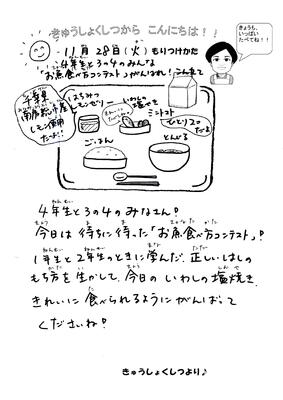 きゅうしょくしつから こんにちは！！
きょうも、
いっぱい
たべてね！！
11月28日(火) もりつけかた
4年生と3の4のみんな
「お魚食べ方コンテスト」がんばれ！こんだて
千葉県
南房総産
レモン使用
だよ♪
はちみつ
レモンゼリー
いわしの
塩やき
ミニトマト
ひとり2こ
だよ
ごはん
とんじる
4年生と3の4のみなさん！
今日は待ちに待った「お魚食べ方コンテスト」！
1年生と2年生のときに学んだ、正しいはしの
もち方を生かして、今日のいわしの塩焼き、
きれいに食べられるようにがんばって
くださいね！
きゅうしょくしつより♪